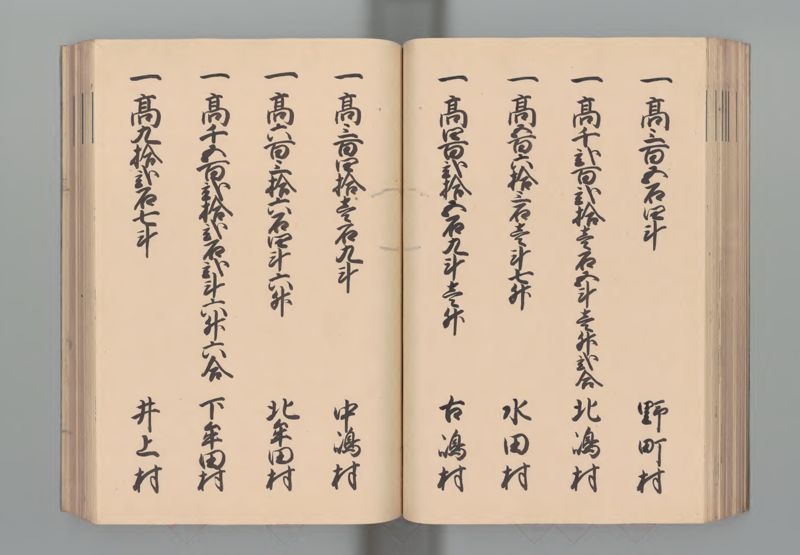 一 高三百五石四斗 野町村
一 高千弐百弐拾壱石五斗壱升弐合 北嶋村
一 高五百六拾三石壱斗七升 水田村
一 高四百弐拾五石九斗壱升 古嶋村
一 高三百四拾壱石九斗 中嶋村
一 高六百三拾六石四斗六升 北牟田村
一 高千五百弐拾弐石弐斗六升六合 下牟田村
一 高九拾弐石七斗 井上村